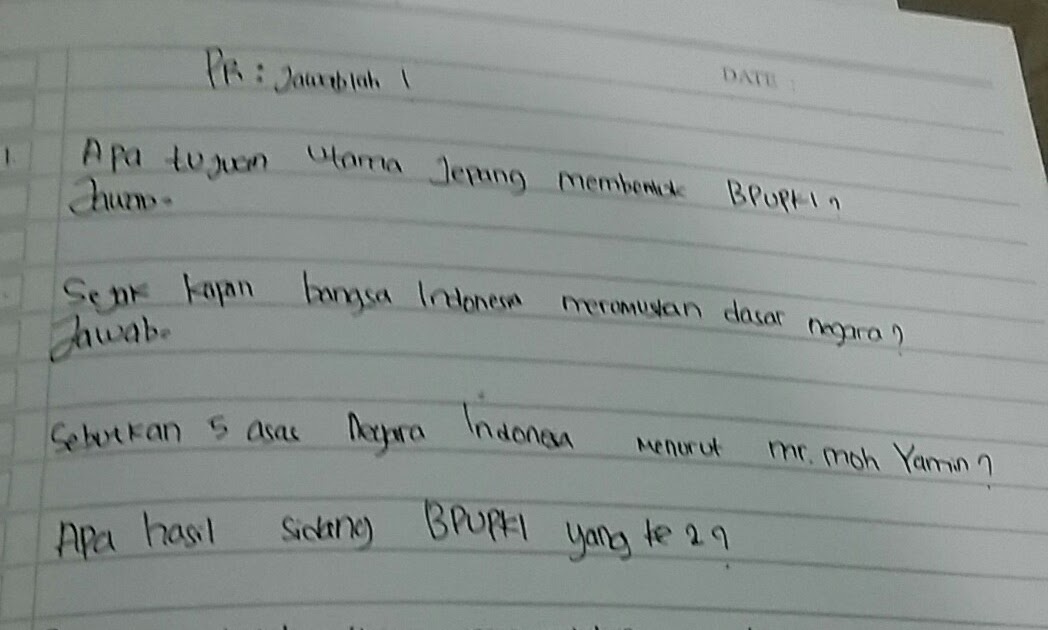 PR : Jawablah !
DATE :
1. Apa tujuan utama Jepang membentuk BPUPKI?
Sejak kapan bangsa Indonesia merumuskan dasar negara?
Jawab.
Sebutkan 5 asas Negara Indonesia menurut mr. moh Yamin?
Apa hasil sidang BPUPKI yang ke 2?